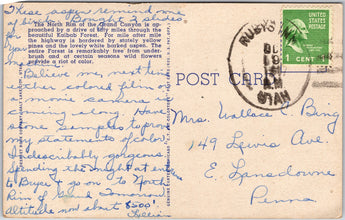 These aspen remind me
of big Bright 2 sides
for your
The North Rim of the Grand Canyon is ap-
proached by a drive of fifty miles through the
beautiful Kaibab Forest. For mile after mile
the highway is bordered by stately yellow
pines and the lovely white barked aspen. The
entire Forest is remarkably free from under-
brush and at certain seasons wild flowers
provide a riot of color.
Believe me, next time
either colored film or
movie camera is
coming along. Have
some samples to prove
my statements of color.
Indescribably gorgeous.
Spending the night at
to Bryce & go on to North
Rim of Grand Tomorrow
Altitude now about 8500'
Lillian
POST CARD
RUBYS INN
UTAH
UNITED STATES
POSTAGE
1 CENT
Mrs. Wallace C. Bing
149 Lewis Ave.
E. Lansdowne
Penna.